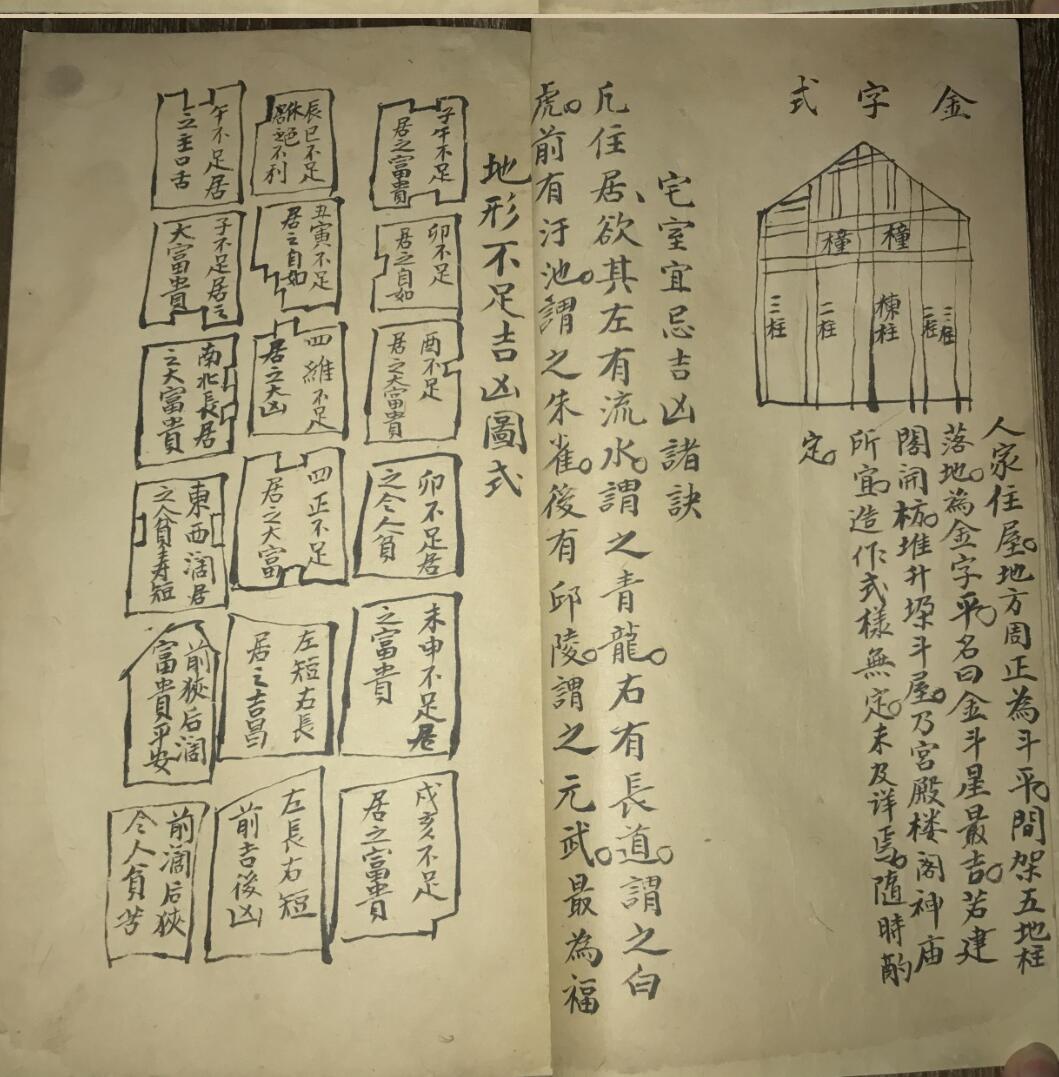 金字式
橦
橦
三柱
二柱
棟柱
二柱
三柱
人家住屋。地方周正為斗平。間架五地柱
落地。為金字平。名曰金斗星最吉。若建
閣開枋。堆升垛斗屋。乃宮殿楼阁神庙
所宜。造作式樣無定。未及详焉。隨時酌
定。
宅室宜忌吉凶諸訣
凡住居、欲其左有流水。謂之青龍。右有長道。謂之白
虎。前有汙池。謂之朱雀。後有邱陵。謂之元武。最為福
地形不足吉凶圖式
子午不足
居之富貴
卯不足
居之自如
酉不足
居之大富貴
卯不足居
之令人貧
未申不足居
之富貴
戌亥不足
居之富貴
辰巳不足
休居
絕不利
丑寅不足
居之自如
四維不足
居之大凶
四正不足
居之大富
左短右長
居之吉昌
左長右短
前吉後凶
午不足居
之主口舌
子不足居之
大富貴
南北長居
之大富貴
東西濶居
之貧寿短
前狹后濶
富貴平安
前濶后狹
令人貧苦